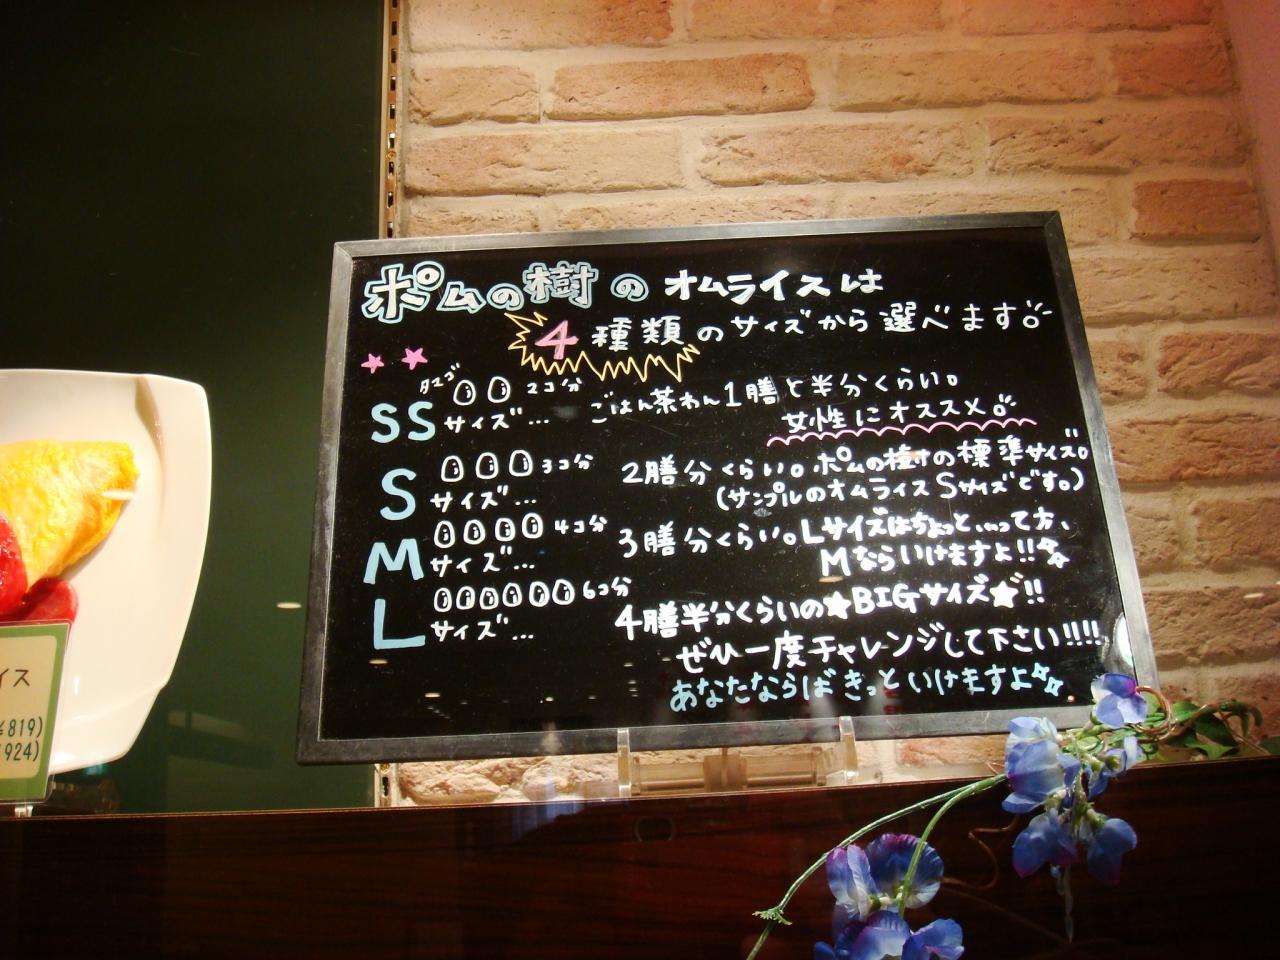 ポムの樹の オムライスは
4種類のサイズから選べます。
タマゴ 2コ分
SSサイズ… ごはん茶わん1膳と半分くらい。
女性にオススメ。
3コ分
Sサイズ… 2膳分くらい。ポムの樹の標準サイズ。
(サンプルのオムライスSサイズです。)
4コ分
Mサイズ… 3膳分くらい。Lサイズはちょっと…って方、
Mならいけますよ!!
6コ分
Lサイズ… 4膳半分くらいの★BIGサイズ★!!
ぜひ一度チャレンジして下さい!!!!
あなたならばきっといけますよ
イス
¥819)
924)